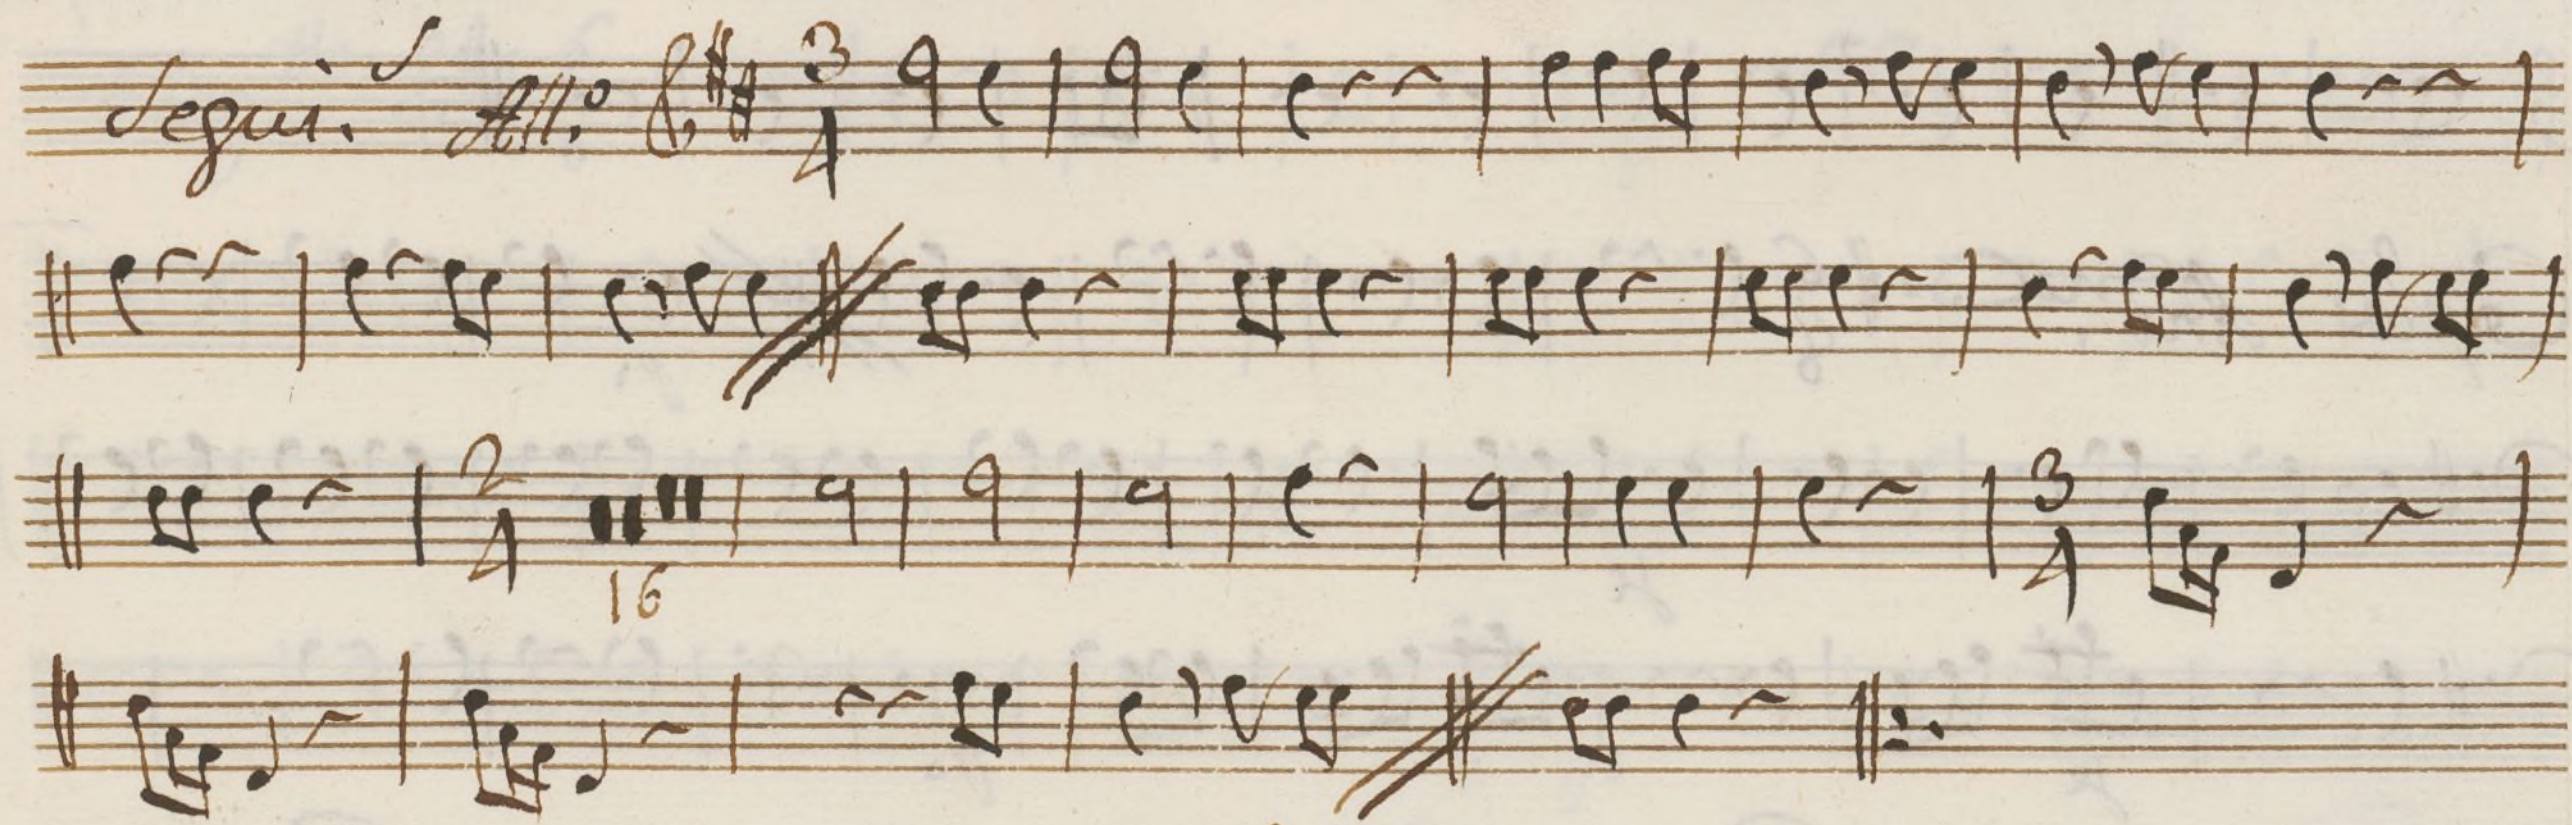 Segui.s All.o 3 4
2 4
16
3 4